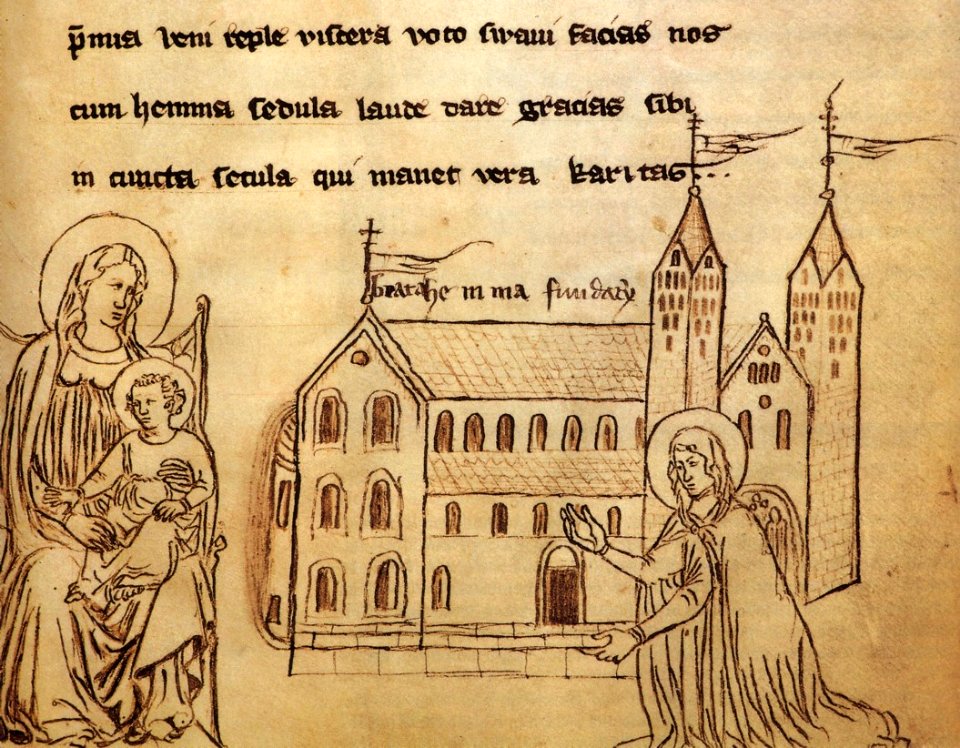 p̄mia veni reple viscera voto suavi facias nos
cum hemma sedula laude dare gracias sibi
in cuncta secula qui manet vera karitas...
beata he in ma fundatͥx